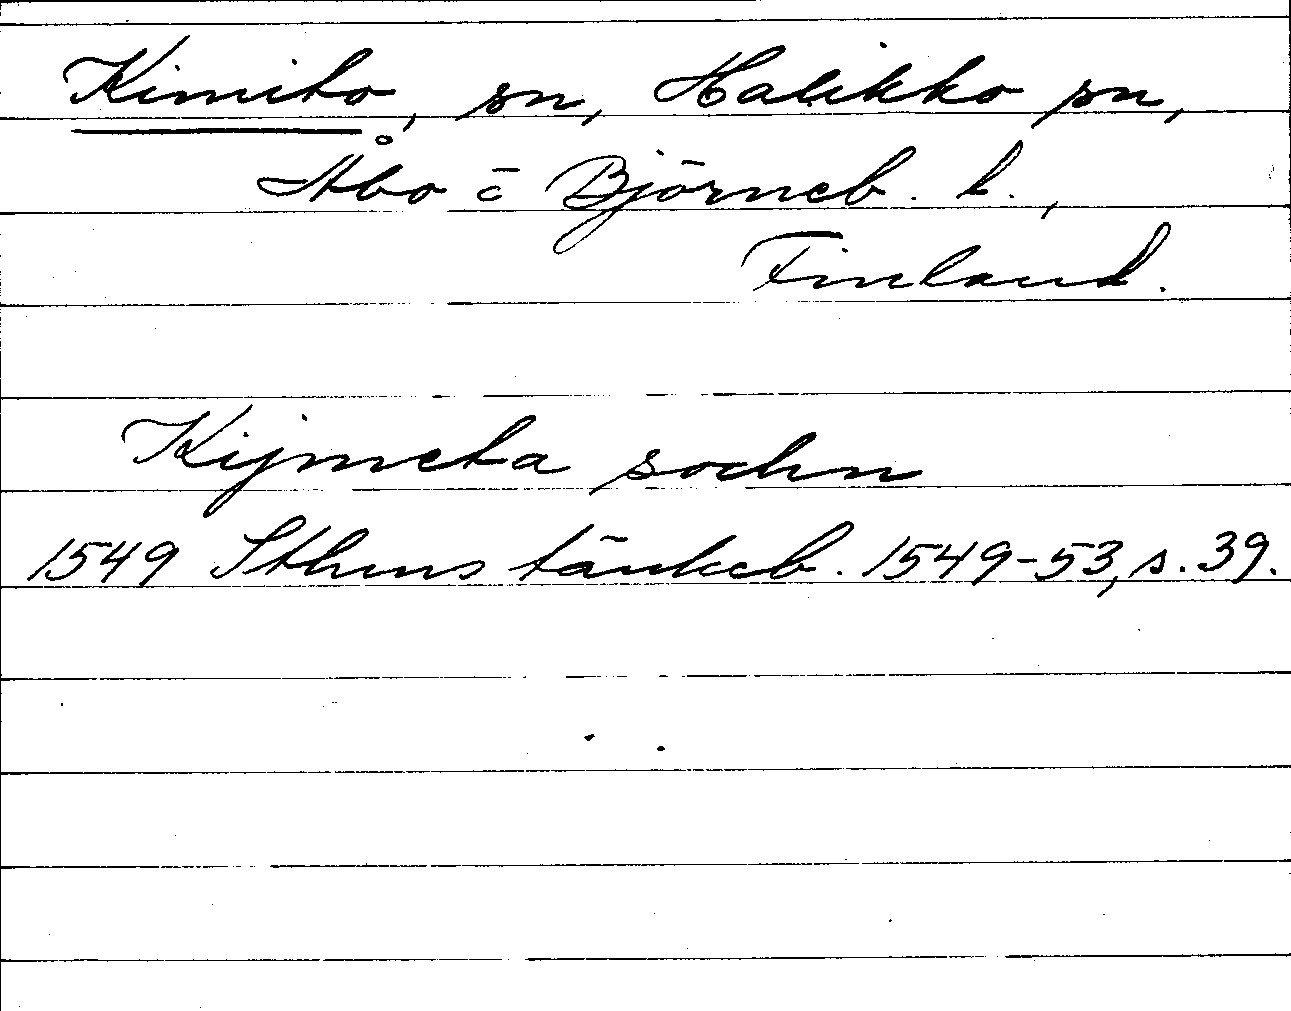 Kimito, sn, Halikko sn,
Åbo o Björneb. l.,
Finland.
Kijmeta sochn
1549 Sthms tänkeb. 1549-53, s. 39.